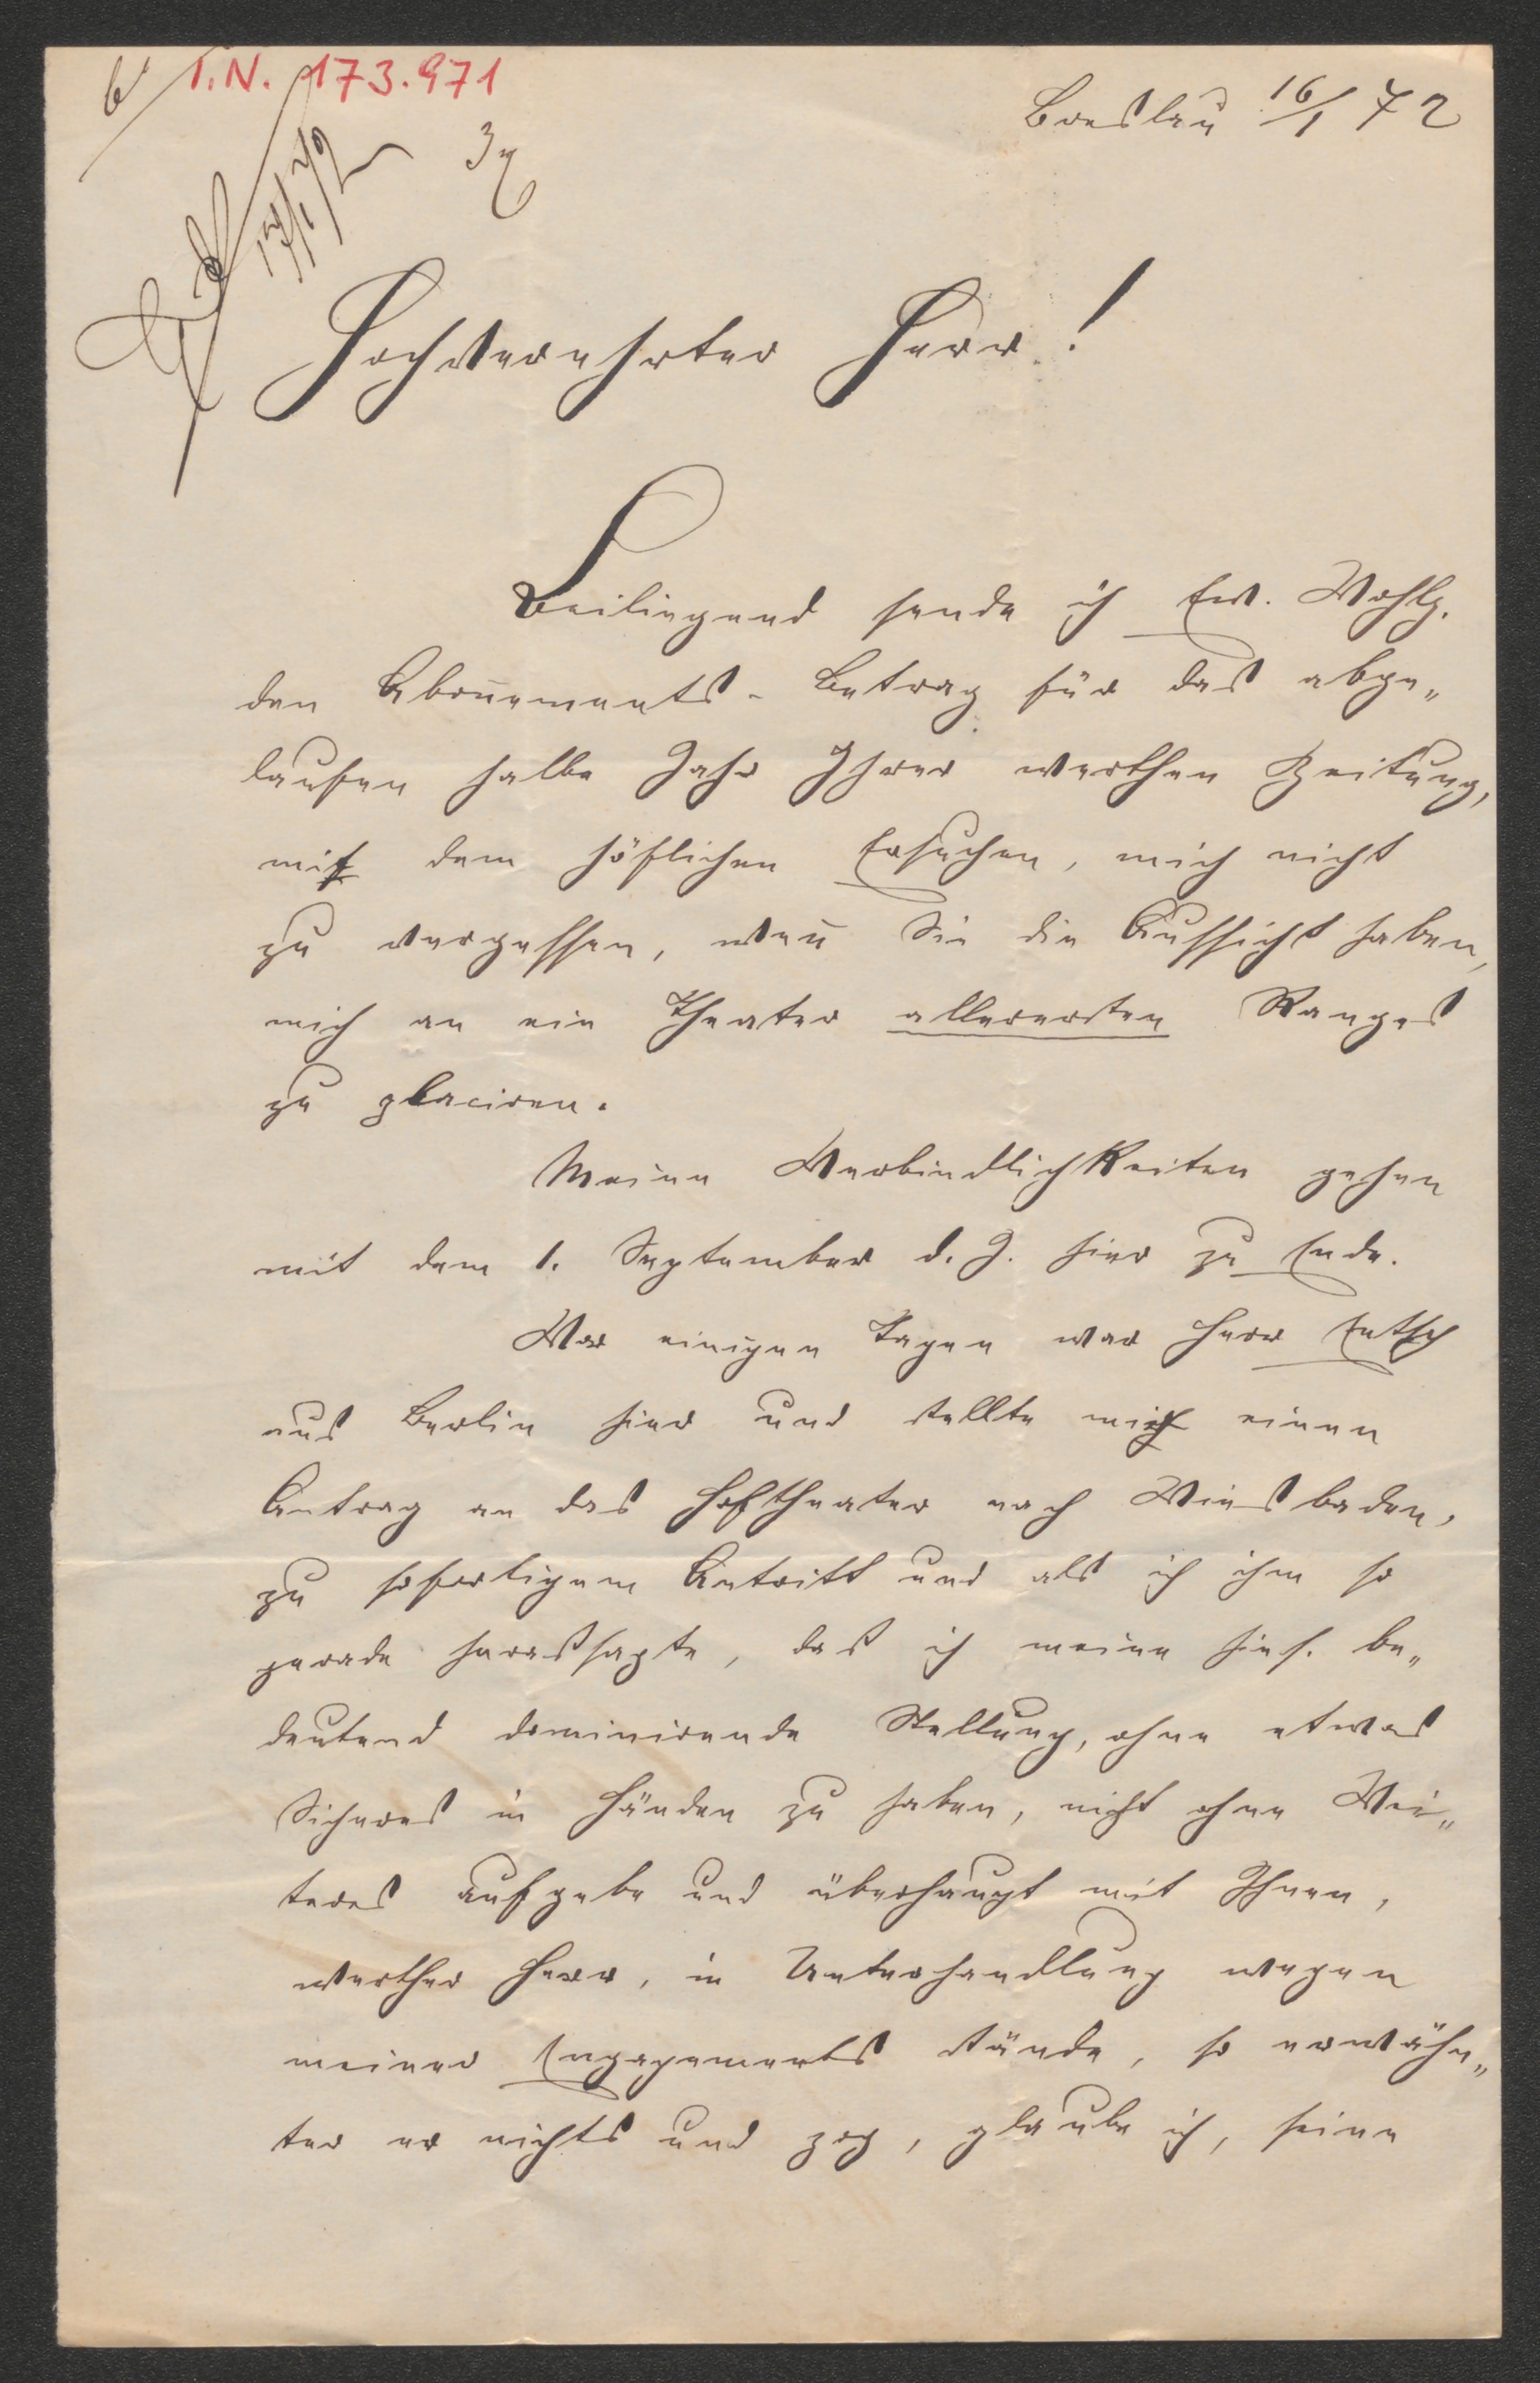 I.N. 173.971
Breslau 16/1 72
Hochverehrter Herr!
Beiliegend sende ich Ew. Wohlg.
den Abonnements-Betrag für das abge-
laufen halbe Jahr Ihrer werthen Zeitung,
mit dem höflichen Ersuchen, mich nicht
zu vergessen, wenn Sie die Aussicht haben,
mich an ein Theater allerersten Ranges
zu placiren.
Meine Verbindlichkeiten gehen
mit dem 1. September d. J. hier zu Ende.
Vor einigen Tagen war Herr Entsch
aus Berlin hier und stellte mich einen
Antrag an das Hoftheater nach Wiesbaden,
zu sofortigem Antritt und als ich ihm so
gerade heraussagte, daß ich meine hies. be-
deutend dominirende Stellung, ohne etwas
Sicheres in Händen zu haben, nicht ohne Wei-
teres aufgebe und überhaupt mit Ihnen,
werther Herr, in Unterhandlung wegen
meiner Engagements stände, so erwähn-
ter er nichts und zog, glaube ich, seine